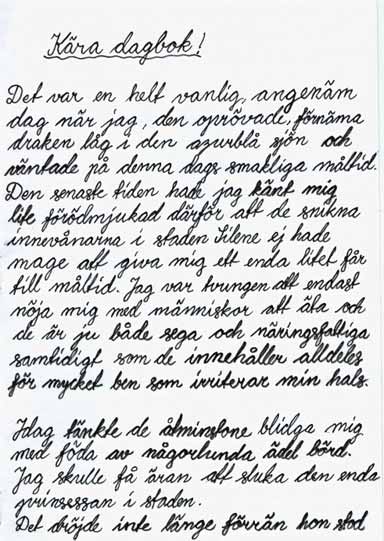 Kära dagbok!
Det var en helt vanlig, angenäm
dag när jag, den oprövade, förnäma
draken låg i den azurblå sjön och
väntade på denna dags smakliga måltid.
Den senaste tiden had jag känt mig
lite förödmjukad därför att de snikna
innevånarna i staden Silene ej hade
mage att giva mig ett enda litet får
till måltid. Jag var tvungen att endast
nöja mig med människor att äta och
de är ju både sega och näringsfattiga
samtidigt som de innehåller alldeles
för mycket ben som irriterar min hals.
Idag tänkte de åtminstone blidga mig
med föda av någorlunda ädel börd.
Jag skulle få äran att sluka den enda
prinsessan i staden.
Det dröjde inte länge förrän hon stod